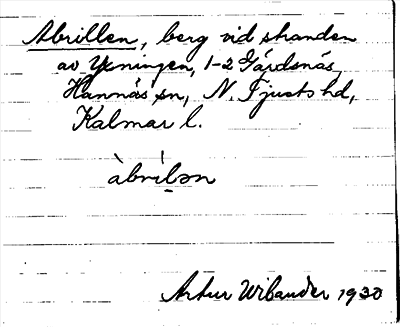 Abrillen, berg vid stranden
av Yxningen, 1-2 Gärdsnäs,
Hannäs sn, N. Tjusts hd,
Kalmar l.
àbrílən
Artur Wilander 1930